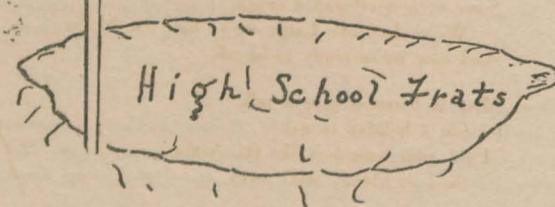 High School Frats